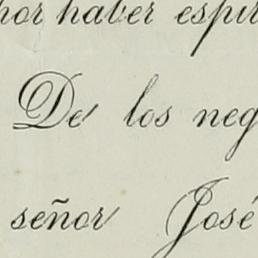 por haber espir
De los neg
señor José